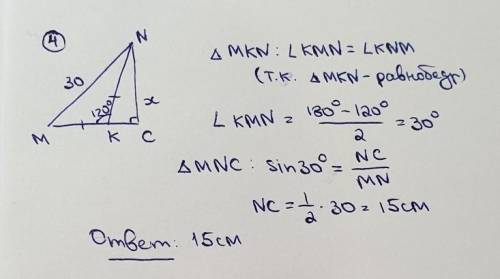 ④
N
30
120°
x
M
K
C
△ MKN : ∠KMN = ∠KNM
(т.к. △MKN - равнобедр)
∠KMN = (180° - 120°)/2 = 30°
△MNC : sin30° = NC/MN
NC = 1/2 · 30 = 15см
Ответ: 15см